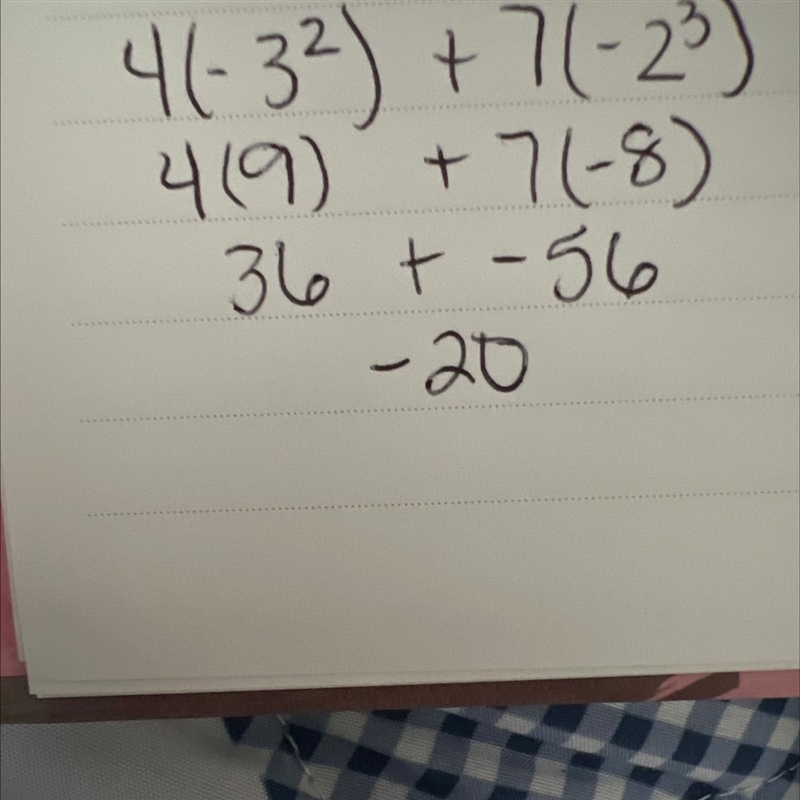 4(-3²) + 7(-2³)
4(9) + 7(-8)
36 + -56
-20